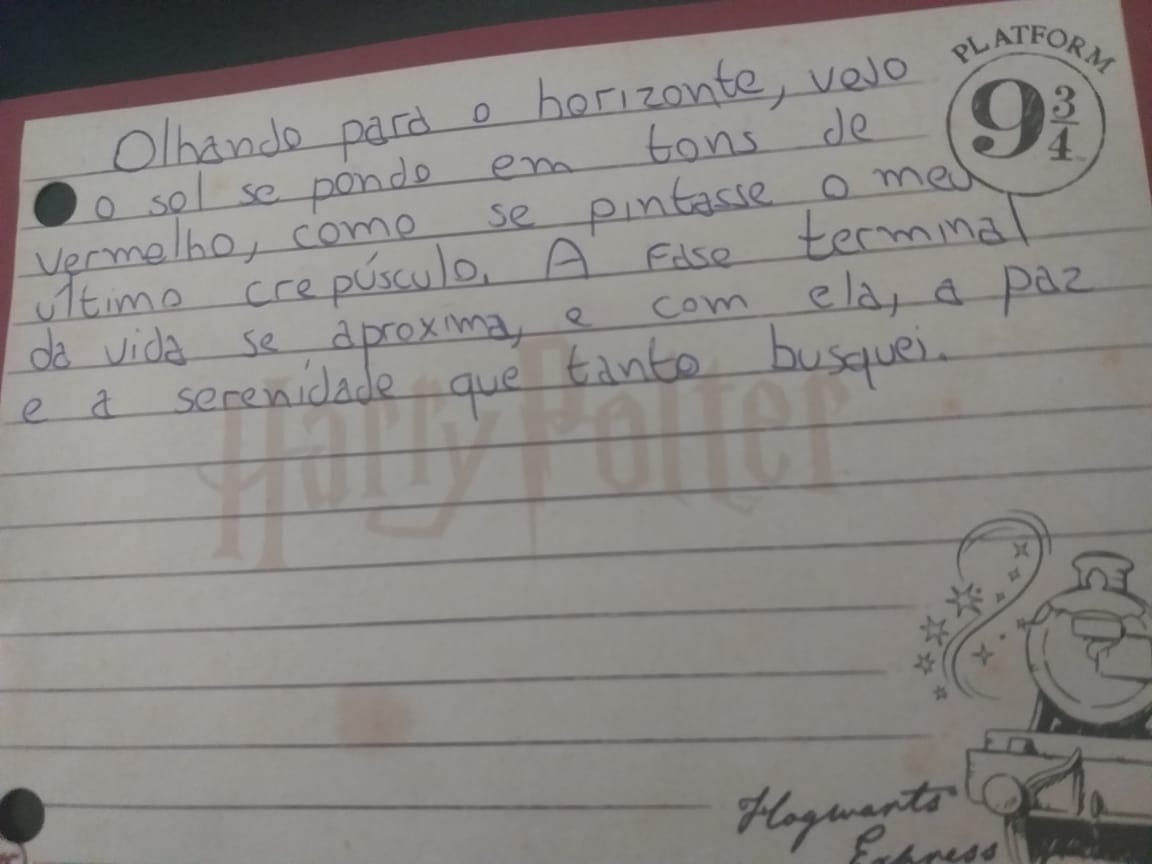 PLATFORM
9 3/4
Olhando para o horizonte, vejo
o sol se pondo em tons de
vermelho, como se pintasse o meu
último crepúsculo. A fase terminal
da vida se aproxima, e com ela, a paz
e a serenidade que tanto busquei.
Harry Potter
Hogwarts
Express